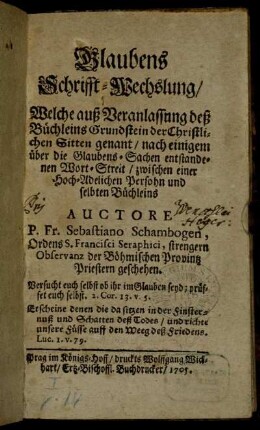 Glaubens
Schrifft-Wechslung/
Welche auß Veranlassung deß
Büchleins Grundstein der Christli-
chen Sitten genant / nach einigem
über die Glaubens-Sachen entstande-
nen Wort-Streit / zwischen einer
Hoch-Adelichen Persohn und
selbten Büchleins
AUCTORE
P. Fr. Sebastiano Schambogen,
Ordens S. Francisci Seraphici, strengern
Observanz der Böhmischen Provintz
Priestern geschehen.
Versucht euch selbst ob ihr im Glauben seyd; prüf-
fet euch selbst. 2. Cor. 13. v. 5.
Erscheine denen die da sitzen in der Finster-
nuß und Schatten deß Todes / und richte
unsere Füsse auff den Weeg deß Friedens.
Luc. 1. v. 79.
Prag im Königs-Hoff / druckts Wolffgang Wic-
hart / Ertz-Bischoffl. Buchdrucker / 1705.